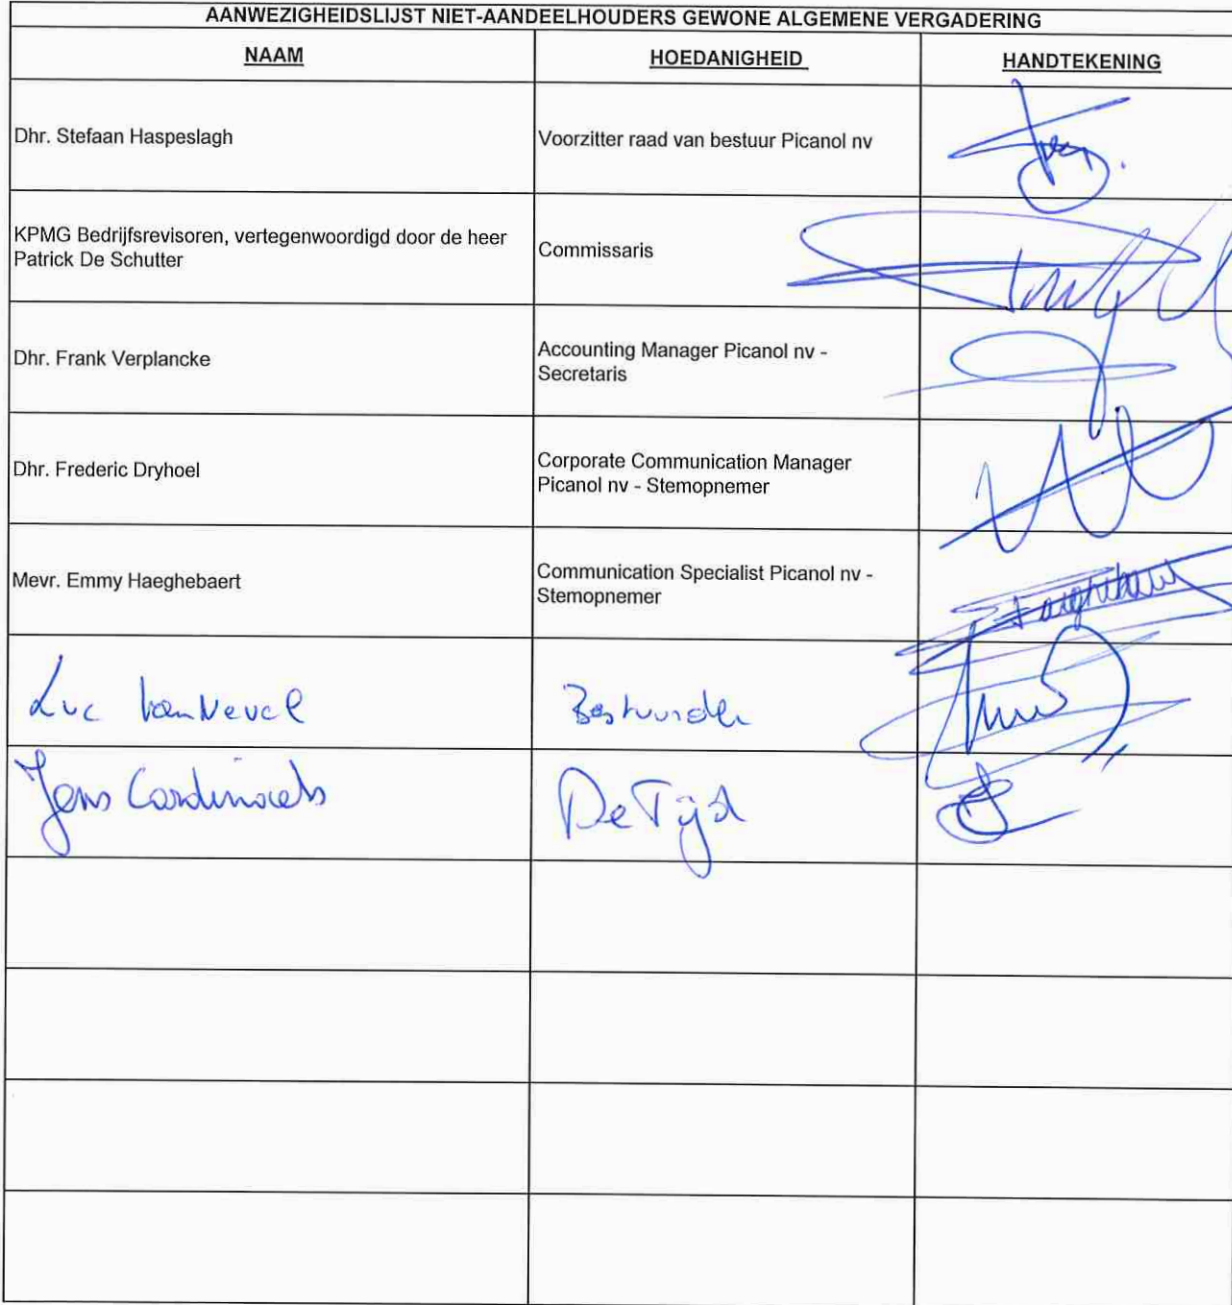 AANWEZIGHEIDSLIJST NIET-AANDEELHOUDERS GEWONE ALGEMENE VERGADERING
NAAM HOEDANIGHEID HANDTEKENING
Dhr. Stefaan Haspeslagh Voorzitter raad van bestuur Picanol nv
KPMG Bedrijfsrevisoren, vertegenwoordigd door de heer
Patrick De Schutter
Commissaris
Dhr. Frank Verplancke
Accounting Manager Picanol nv -
Secretaris
Dhr. Frederic Dryhoel
Corporate Communication Manager
Picanol nv - Stemopnemer
Mevr. Emmy Haeghebaert
Communication Specialist Picanol nv -
Stemopnemer
Luc Van Nevel Bestuurder
Jens Cardinaels De Tijd